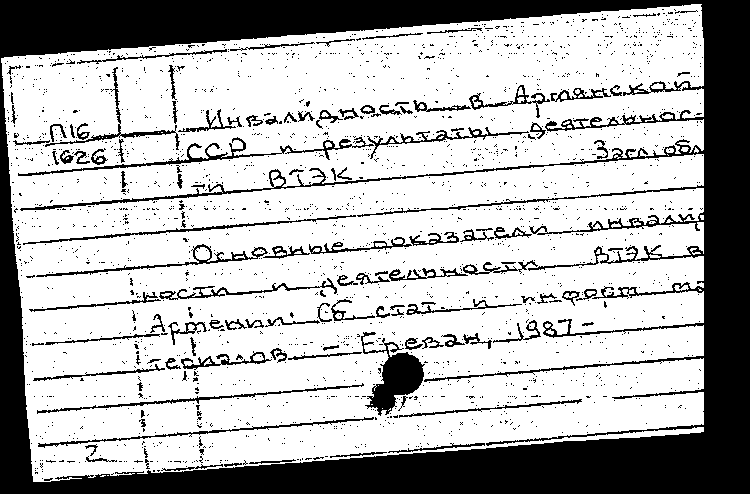 Инвалидность в Армянской
П16
1626 ССР и результаты деятельнос-
ти ВТЭК. Загл. обл
Основные показатели инвалид
ности и деятельности ВТЭК в
Армении: Сб. стат. и информ. ма
териалов. – Ереван, 1987 –
2